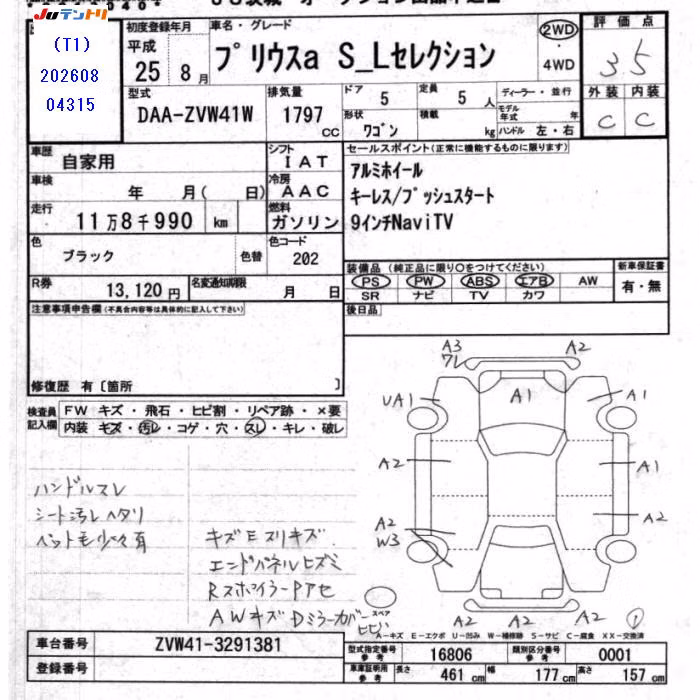 Juテントリ
(T1)
202608
04315
初度登録年月
平成
25 8月
車名・グレード
プリウスa S_Lセレクション
2WD
・
4WD
評価点
3.5
外装 内装
C C
型式
DAA-ZVW41W
排気量
1797
cc
ドア
5
定員
5 人
形状
ワゴン
積載
kg
ディーラー・並行
モデル年式 年
ハンドル 左・右
車歴
自家用
シフト
IAT
車検
年 月( 日)
冷房
AAC
走行
11万8千990 km
燃料
ガソリン
セールスポイント(正常に機能するものに限ります)
アルミホイール
キーレス/プッシュスタート
9インチNaviTV
色
ブラック
色替
色コード
202
R券
13,120円
名変通知期限
月 日
装備品(純正品に限り○をつけてください)
PS PW ABS エアB AW
SR ナビ TV カワ
新車保証書
有・無
注意事項申告欄(不具合内容等は具体的に記入して下さい)
後日品
修復歴 有〔箇所 〕
検査員記入欄
FW キズ・飛石・ヒビ割・リペア跡・×要
内装 キズ・汚レ・コゲ・穴・スレ・キレ・破レ
ハンドルスレ
シート汚レヘタリ
ペット毛少々有
キズEスリキズ
エンドパネルヒズミ
RスポイラーPアセ
AWキズ Dミラーカバーヒビ
A3
ワレ
A2
UA1
A1
A1
A2
A1
A2
W3
A2
A2
A2
スペア
1
A-キズ E-エクボ U-凹み W-補修跡 S-サビ C-腐食 XX-交換済
車台番号
ZVW41-3291381
登録番号
型式指定番号
参考
16806
類別区分番号
参考
0001
車庫証明用
参考
長さ
461 cm
幅
177 cm
高さ
157 cm